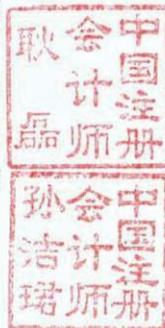 中国注册
会计师
耿磊
中国注册
会计师
孙洁珺